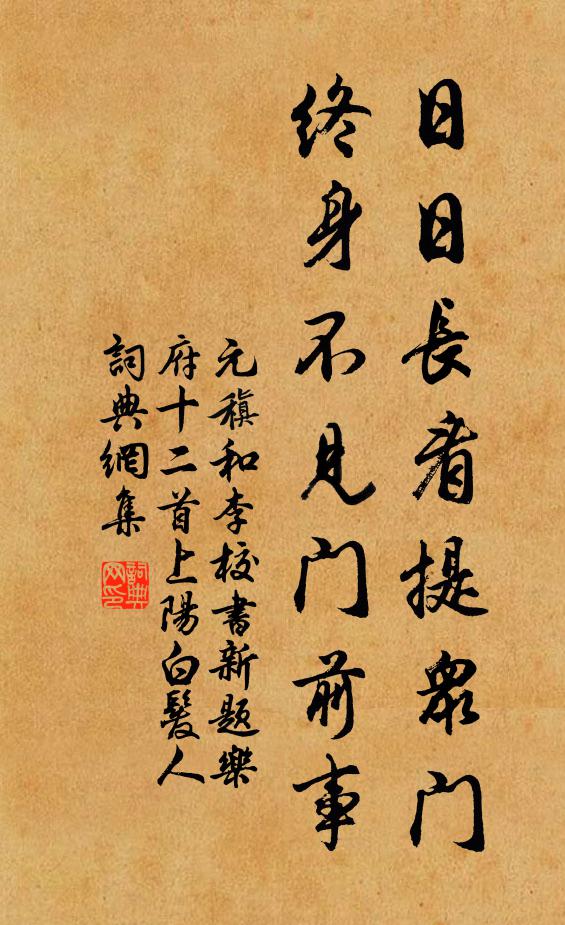 日日長看提衆門
終身不見門前事
元稹和李校書新題樂
府十二首上陽白髮人
詞典網集
詞典
网印